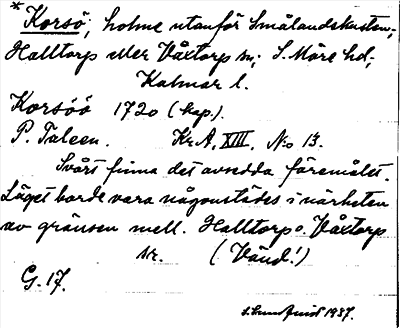 * Korsö, holme utanför Smålandskusten,
Halltorp eller Våxtorp sn; S. Möre hd,
Kalmar l.
Korsöö 1720 (kop.)
P. Taleen. Kr. A. XIII, No 13.
Svårt finna det avsedda föremålet.
Läget borde vara någonstädes i närheten
av gränsen mell. Halltorp o. Våxtorp
sn. (Vänd!)
G. 17.
1937.